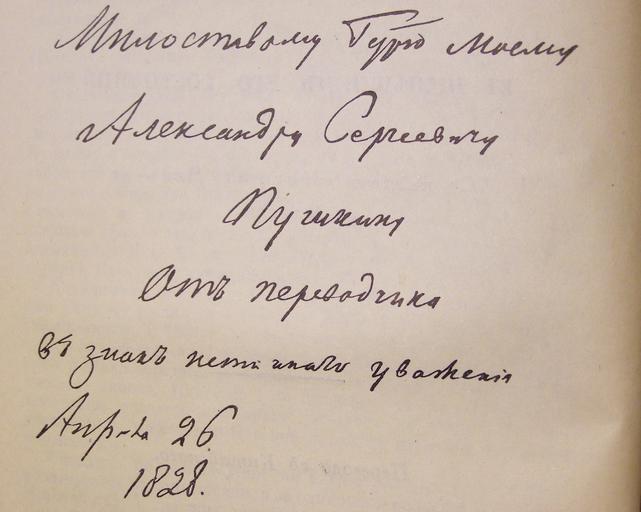 Милостивому Гдрю моему
Александру Сергеевичу
Пушкину
Отъ переводчика
въ знакъ истиннаго уваженія
Апрѣля 26
1828.